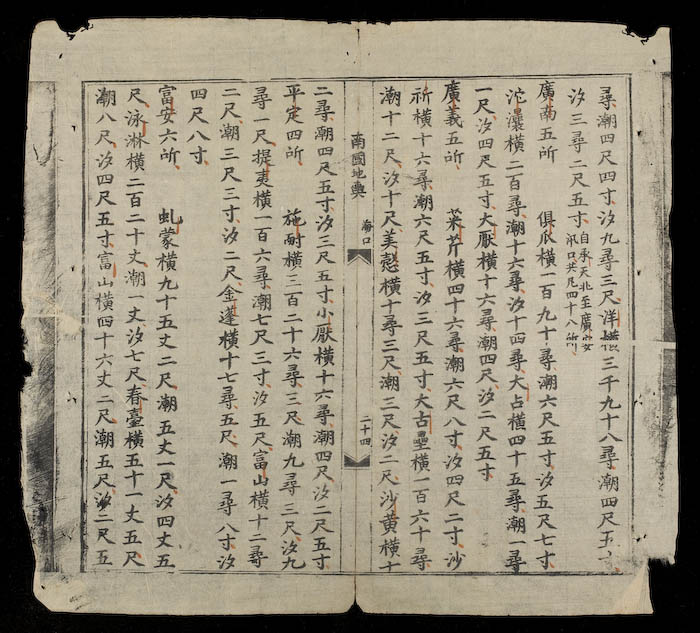 尋潮四尺四寸汐九尋三尺洋橫三千九十八尋潮四尺五寸
汐三尋二尺五寸自承天北至廣安汛口共凡四十八所
廣南五所 俱瓜橫一百九十尋潮六尺五寸汐五尺七寸
沱㶞橫二百尋潮十六尋汐十四尋大占橫四十五尋潮一尋
一尺汐四尺五寸大厭橫十六尋潮四尺汐二尺五寸
廣義五所 菜芹橫四十六尋潮六尺八寸汐四尺二寸沙
祈橫十六尋潮六尺五寸汐三尺五寸大古壘橫一百六十尋
潮十二尺汐十尺美橫十尋三尺潮三尺汐二尺沙黃橫十
南國地輿 海口 二十四
二尋潮四尺五寸汐三尺五寸小厭橫十六尋潮四尺汐二尺五寸
平定四所 施耐橫三百二十六尋三尺潮九尋三尺汐九
尋一尺提夷橫一百六尋潮七尺三寸汐五尺富山橫十二尋
二尺潮三尺三寸汐二尺金蓬橫十七尋五尺潮一尋八寸汐
四尺八寸
富安六所 虬蒙橫九十五丈二尺潮五丈一尺汐四丈五
尺泳淋橫二百二十丈潮一丈汐七尺春臺橫五十一丈五尺
潮八尺汐四尺五寸富山橫四十六丈二尺潮五尺汐二尺五